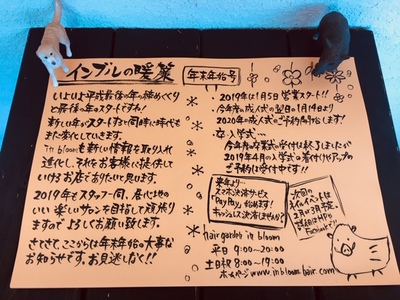 インブルの暖簾 年末年始号
いよいよ平成最後の年の締めくくり
と最後の年のスタートですね!
新しい年がスタートすると同時に時代も
また変化していきます。
in bloomも新しい情報を取り入れ
進化し、それをお客様に提供して
いけるお店でありたいと思います。
2019年もスタッフ一同、居心地の
いい楽しいサロンを目指して頑張り
ますのでよろしくお願い致します。
さてさてここからは年末年始の大事な
お知らせです。お見逃しなく!!
・2019年は1月5日営業スタート!!
・今年度の成人式の翌日1月14日より
2020年の成人式のご予約開始します!
・卒・入学式…
今年度の卒業式の受付は終了しましたが
2019年4月の入学式の着付けやアップの
ご予約は受付中です!!
来年より
スマホ決済サービス
「PayPay」始めます!
キャッシュレス決済しませんか?
次回の
ネイルイベントは
2月か3月予定。
詳細はHPか
Facebookで!!
hair garden in bloom
平日 9:00~20:00
土日祝 9:00~19:00
ホームページwww.inbloom-hair.com